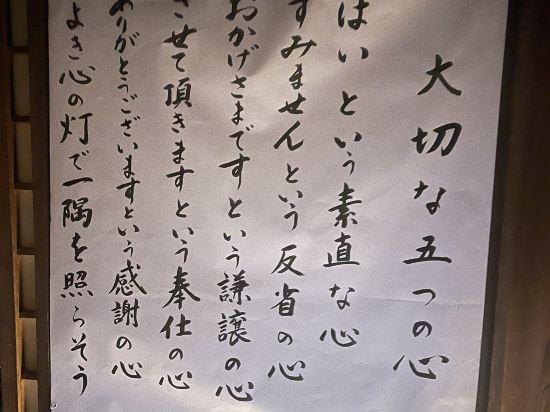 大切な五つの心
はいという素直な心
すみませんという反省の心
おかげさまですという謙譲の心
させて頂きますという奉仕の心
ありがとうございますという感謝の心
よき心の灯で一隅を照らそう